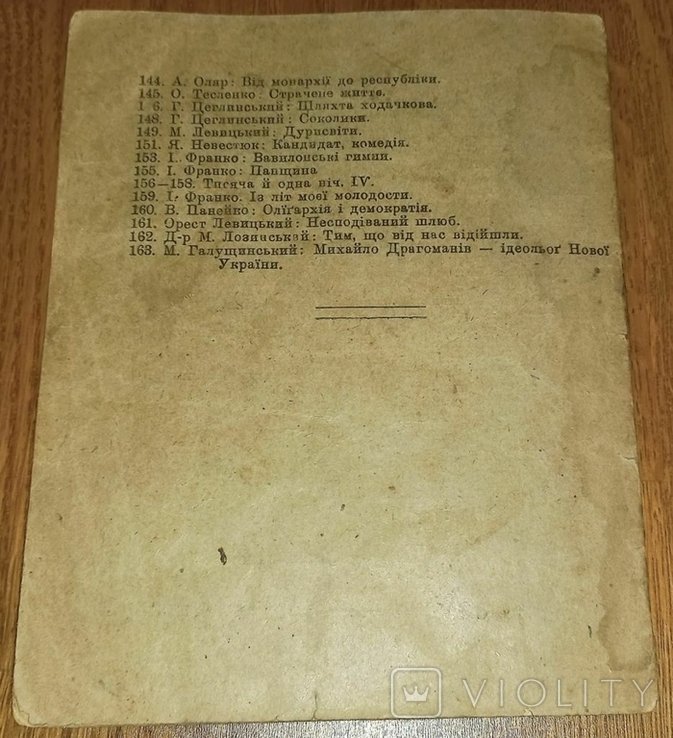 144. А. Оляр: Від монархії до республіки.
145. О. Тесленко: Страчене життє.
1 6. Г. Цеглинський: Шляхта ходачкова.
148. Г. Цеглинський: Соколики.
149. М. Левицький: Дурисвіти.
151. Я. Невестюк: Кандидат, комедія.
153. І. Франко: Вавилонські гимни.
155. І. Франко: Панщина
156—158. Тисяча й одна ніч. IV.
159. І. Франко. Із літ моєї молодости.
160. В. Панейко: Оліґархія і демократія.
161. Орест Левицький: Несподіваний шлюб.
162. Д-р М. Лозинський: Тим, що від нас відійшли.
163. М. Галущинський: Михайло Драгоманів — ідеольоґ Нової
України.
VIOLITY